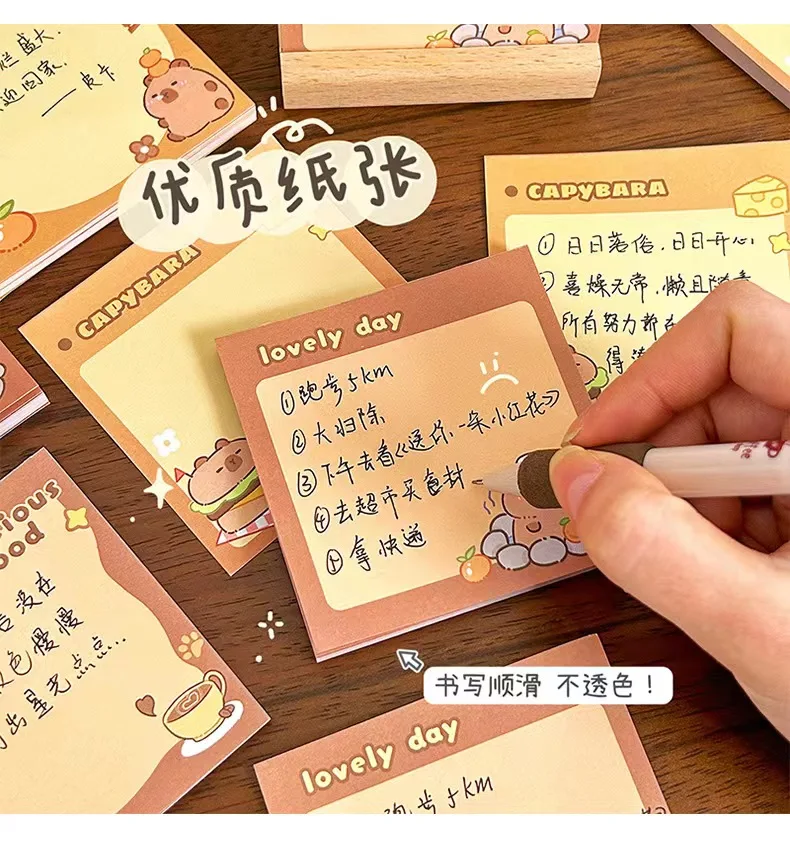 烂盛大,
迎回家.
——皮卡
优质纸张
CAPYBARA
① 日日落俗,日日开心
② 喜燥无常,懒且随意
所有努力都在
得
CAPYBARA
lovely day
①跑步5km
②大扫除
③下午去看《送你一朵小红花》
④去超市买食材
⑤拿快递
ious
ood
没在
色慢慢
出星光点点...
书写顺滑 不透色!
lovely day
跑步5km